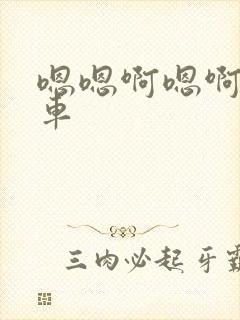 嗯嗯啊嗯啊
車
三肉必起牙霸